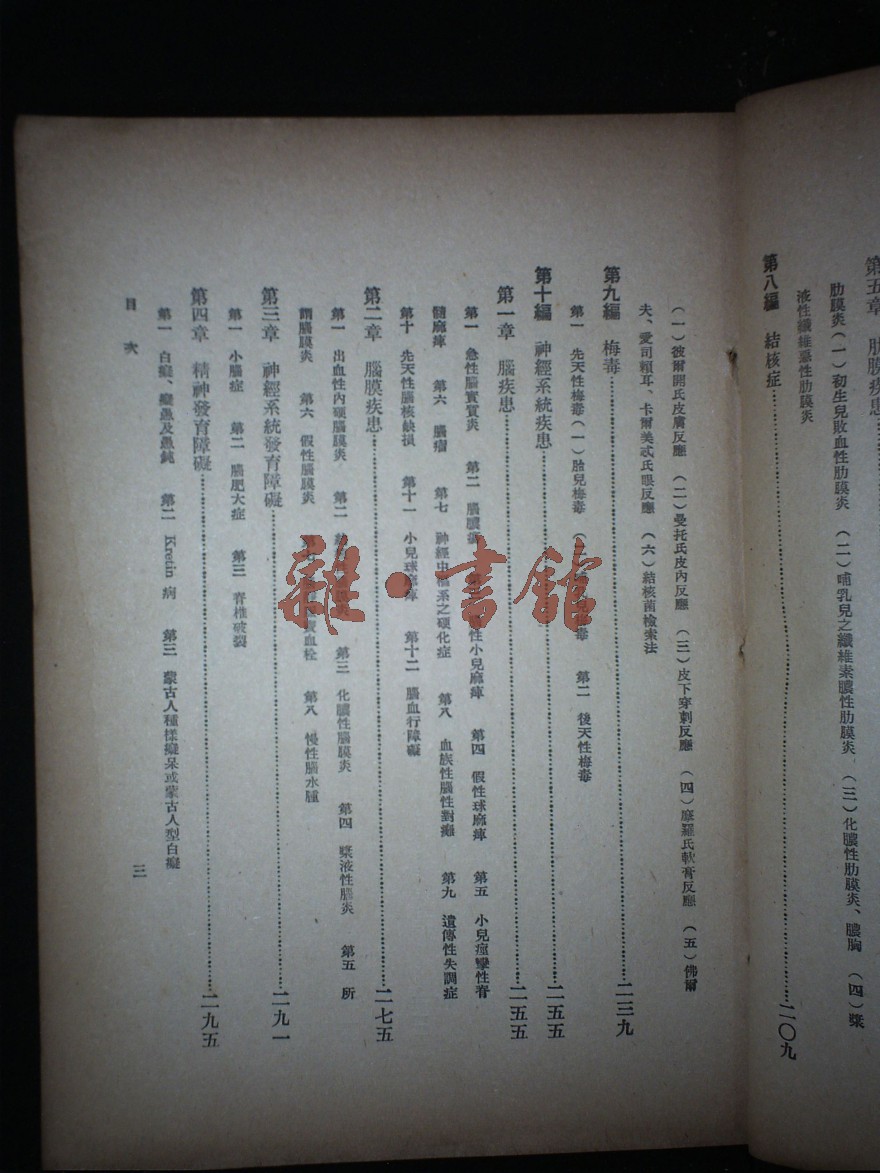 第五章 肋膜疾患
肋膜炎 (一)初生兒敗血性肋膜炎 (二)哺乳兒之纖維素膿性肋膜炎 (三)化膿性肋膜炎、膿胸 (四)漿
液性纖維素性肋膜炎
第八編 結核症……二〇九
(一)彼爾開氏皮膚反應 (二)曼托氏皮內反應 (三)皮下穿刺反應 (四)摩羅氏軟膏反應 (五)佛爾
夫、愛司賴耳、卡爾美忒氏眼反應 (六)結核菌檢索法
第九編 梅毒……二三九
第一 先天性梅毒 (一)胎兒梅毒 第二 後天性梅毒
第十編 神經系統疾患……二五五
第一章 腦疾患……二五五
第一 急性腦實質炎 第二 腦膿 性小兒麻痺 第四 假性球麻痺 第五 小兒痙攣性脊
髓麻痺 第六 腦瘤 第七 神經中 系之硬化症 第八 血族性腦性對癱 第九 遺傳性失調症
第十 先天性腦核缺損 第十一 小兒球麻痺 第十二 腦血行障礙
第二章 腦膜疾患……二七五
第一 出血性內硬腦膜炎 第二 第三 化膿性腦膜炎 第四 漿液性腦炎 第五 所
謂腦膜炎 第六 假性腦膜炎 竇血栓 第八 慢性腦水腫
第三章 神經系統發育障礙……二九一
第一 小腦症 第二 腦肥大症 第三 脊椎破裂
第四章 精神發育障礙……二九五
第一 白癡、癡愚及愚鈍 第二 Kretin 病 第三 蒙古人種樣癡呆或蒙古人型白癡
目次
三
雜·書館